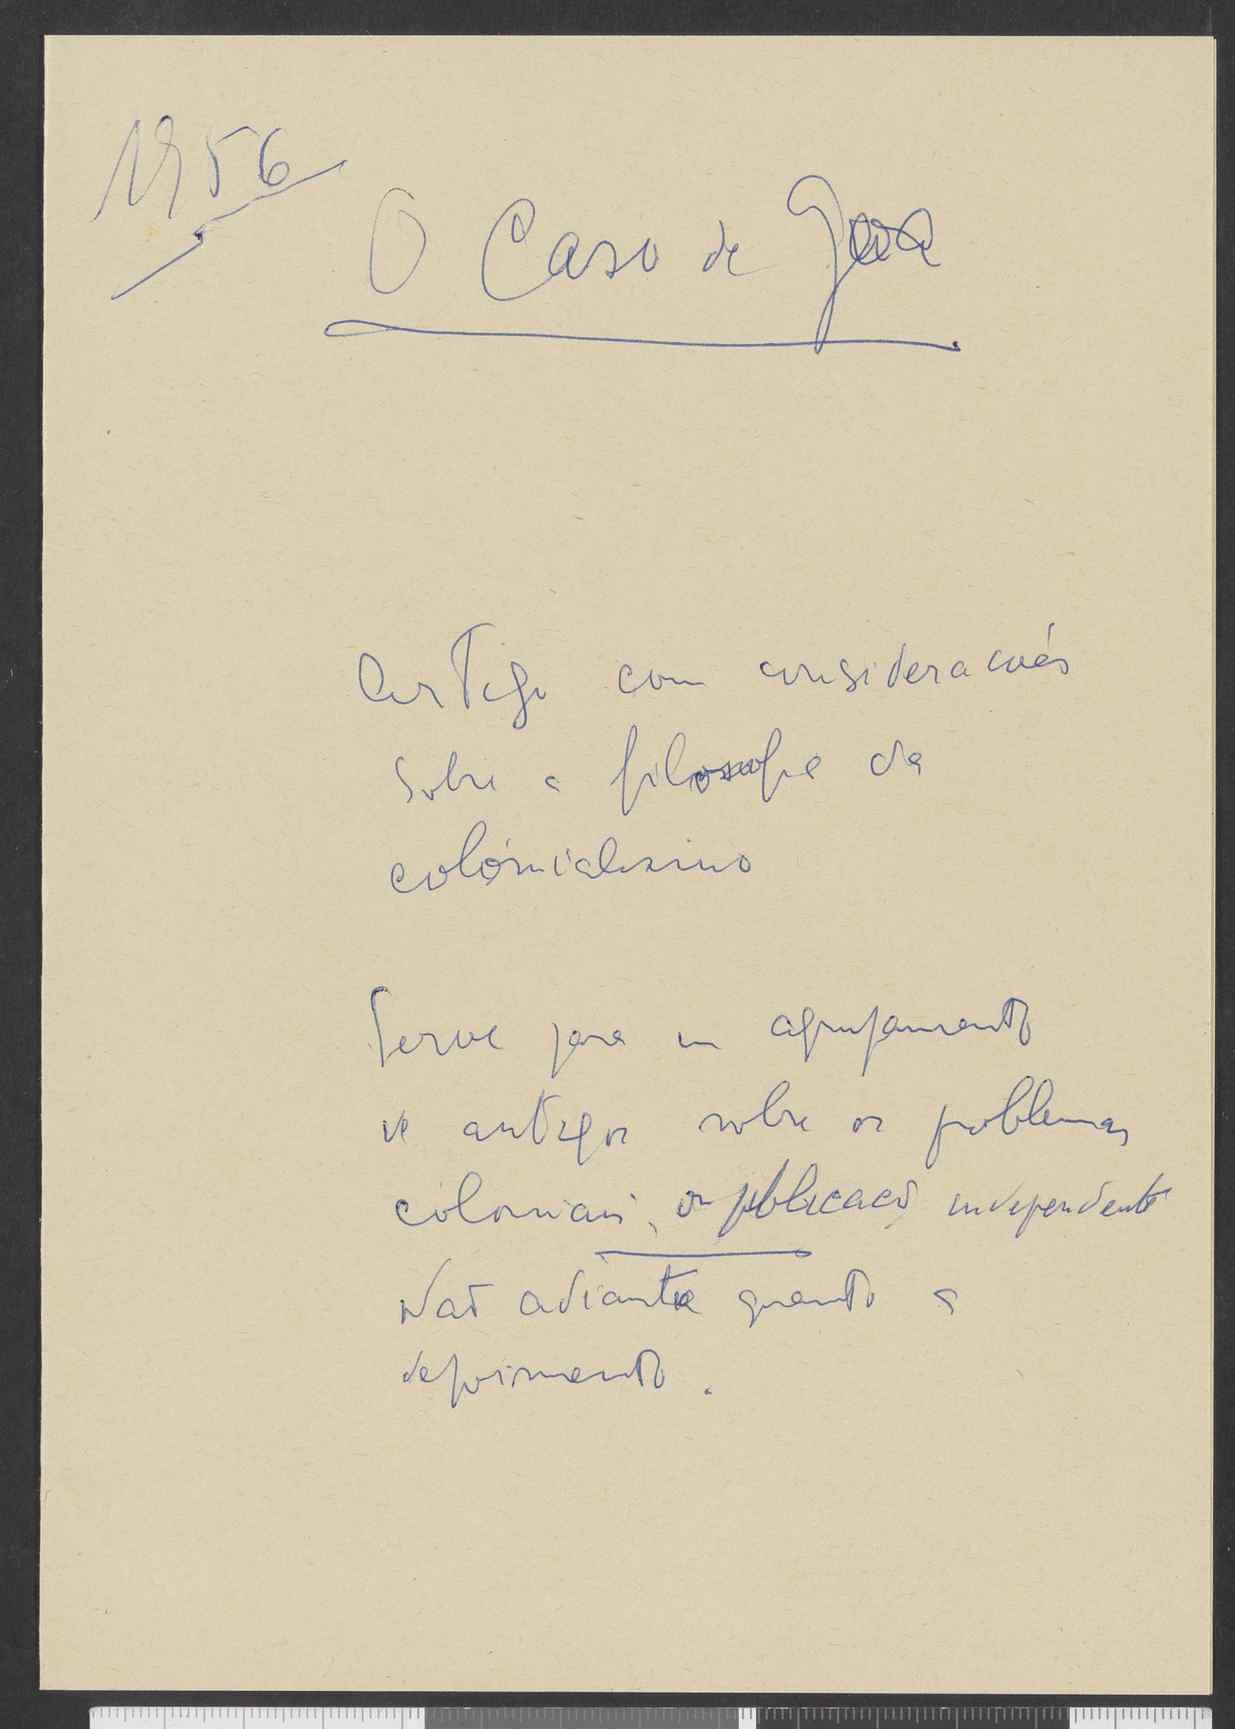 1956
O Caso de Goa
Artigo com considerações
sobre a filosofia da
colónialismo
Serve para um agrupamento
de artigos sobre os problemas
coloniais, ou publicação independente
Não adianta quanto a
depoimento.